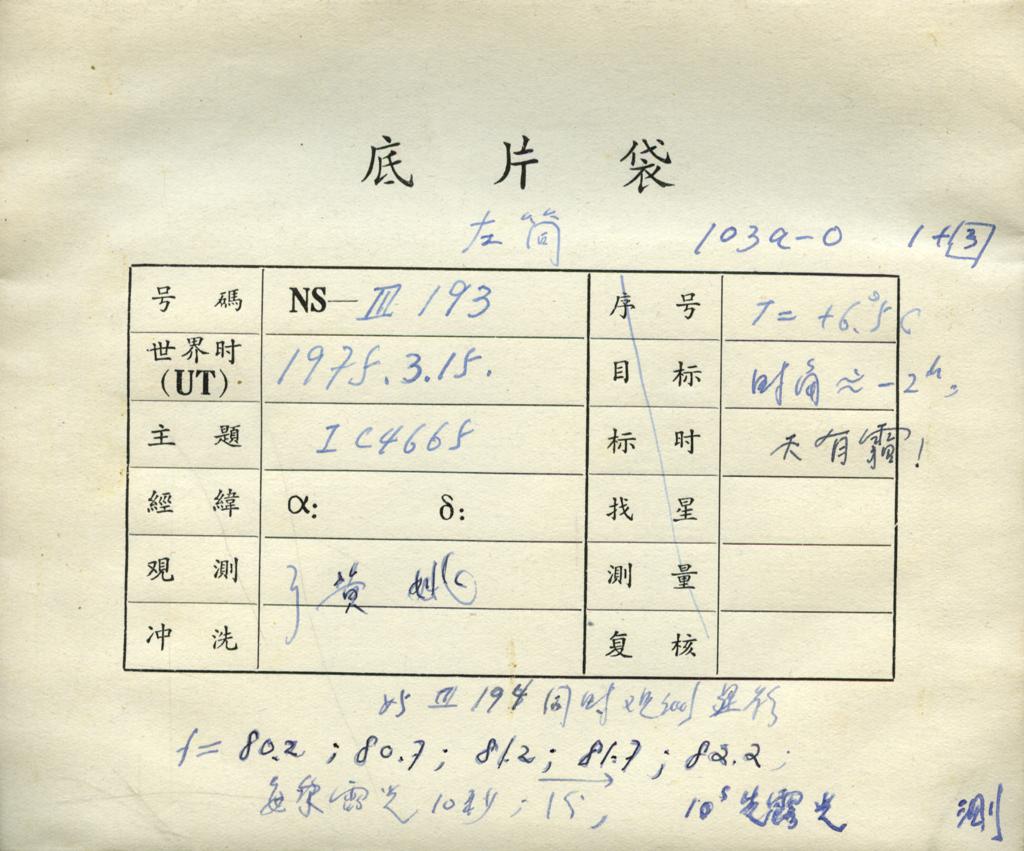 底 片 袋
左筒 103a-O 1+3
号 碼 NS—Ⅲ 193 序 号 T= +6.°5 C
世界时 (UT) 1975.3.15. 目 标 时角≈-2ʰ,
主 題 IC4665 标 时 天有霜!
經 緯 α: δ: 找 星
观 測 黄 姚 測 量
冲 洗 复 核
与Ⅲ194同时观测显影
f= 80.2 ; 80.7 ; 81.2 ; 81.7 ; 82.2 ;
露光10秒, 15, 10ˢ 先露光
测